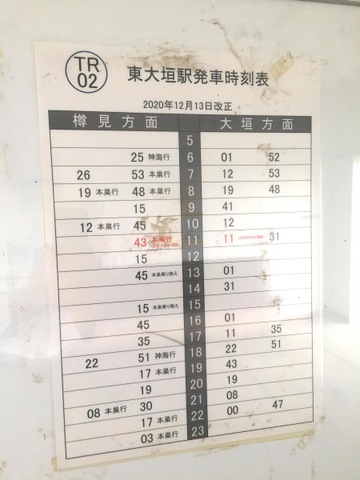 TR
02
東大垣駅発車時刻表
2020年12月13日改正
樽見方面 大垣方面
5
25 神海行 6 01 52
26 53 本巣行 7 12 53
19 本巣行 48 本巣行 8 19 48
15 9 41
12 本巣行 45 10 12
43 本巣行 11 11 31
15 12
45 本巣乗り換え 13 01
14 31
15 本巣乗り換え 15
45 16 01
35 17 11 35
22 51 神海行 18 22 51
17 本巣行 19 43
19 20 19
08 本巣行 30 21 08
17 本巣行 22 00 47
03 本巣行 23